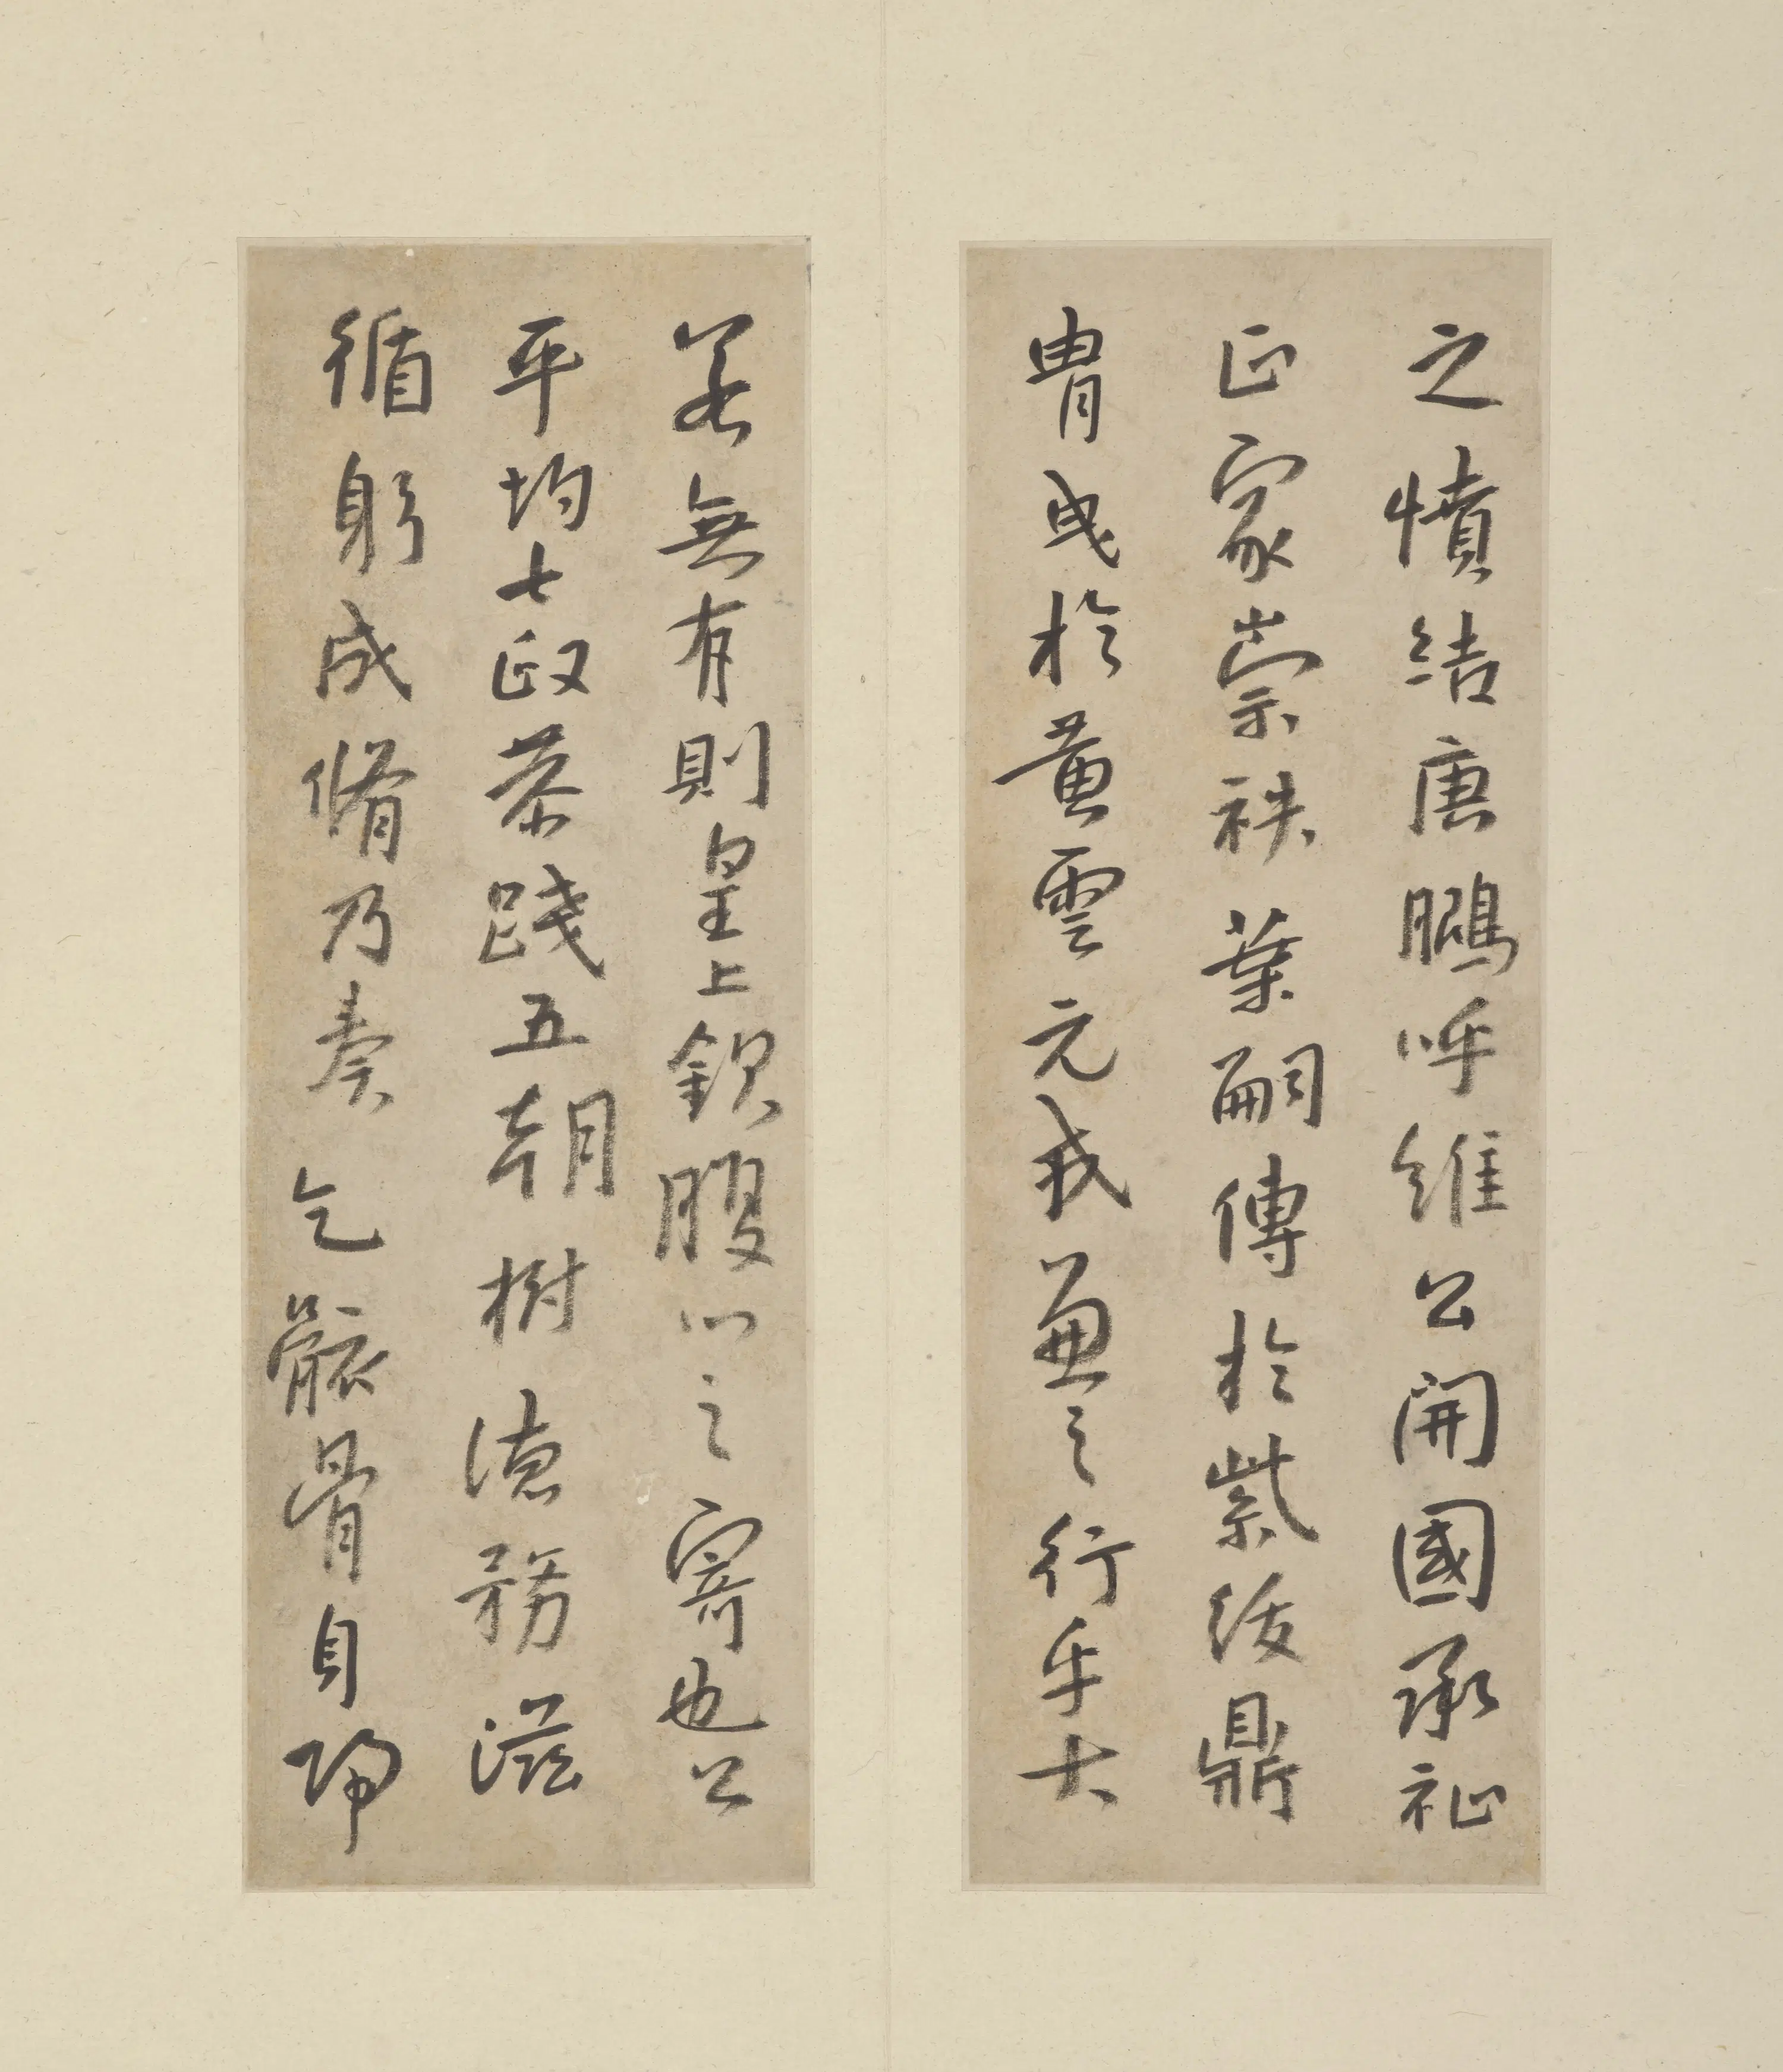 之憤結唐鵬呼維公開國承祉
正家崇秩葉嗣傳於紫綬鼎
胄曳於黄雲元我兼之行乎大
若無有則皇上欽腹心之寄也公
平均七政恭踐五朝樹德務滋
循躬成脩乃奏乞骸骨自歸